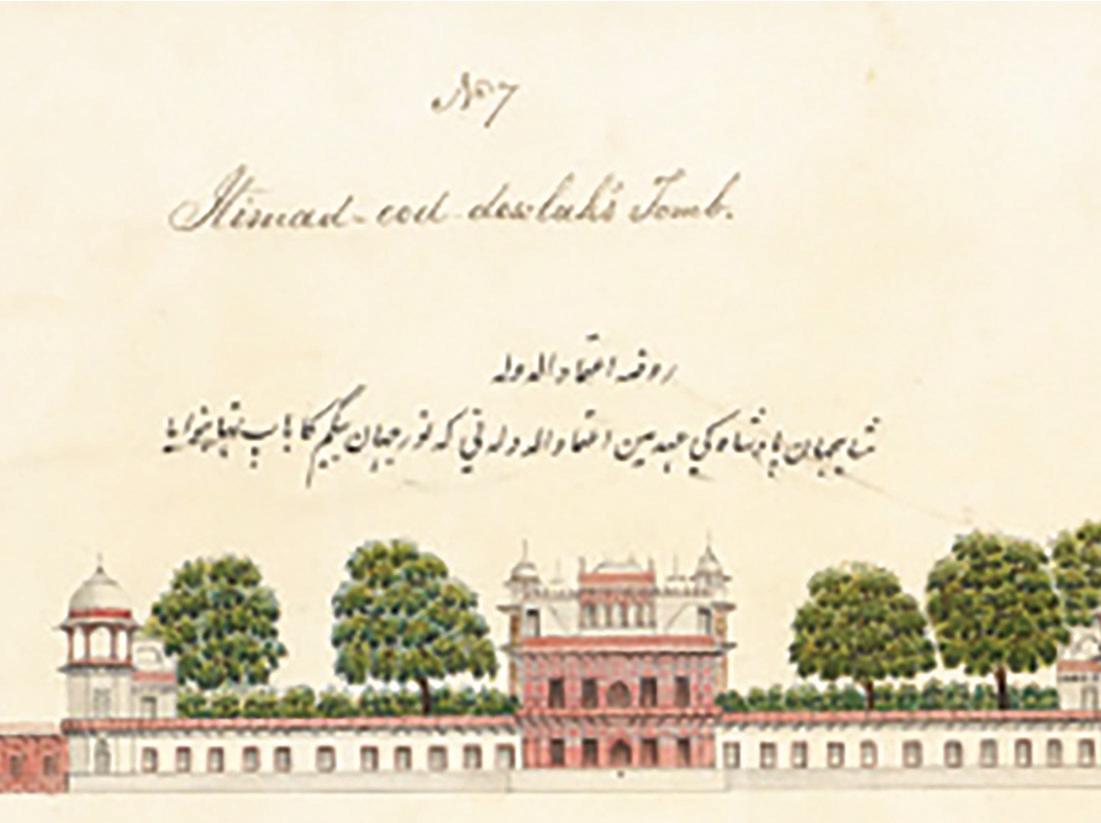 No 7
Itimad-ood-dowlah's Tomb.
روضہ اعتماد الدولہ
شاہجہان بادشاہ کی عہد مین اعتماد الدولہ نی کہ نور جہان بیگم کا باپ تہا بنوایا